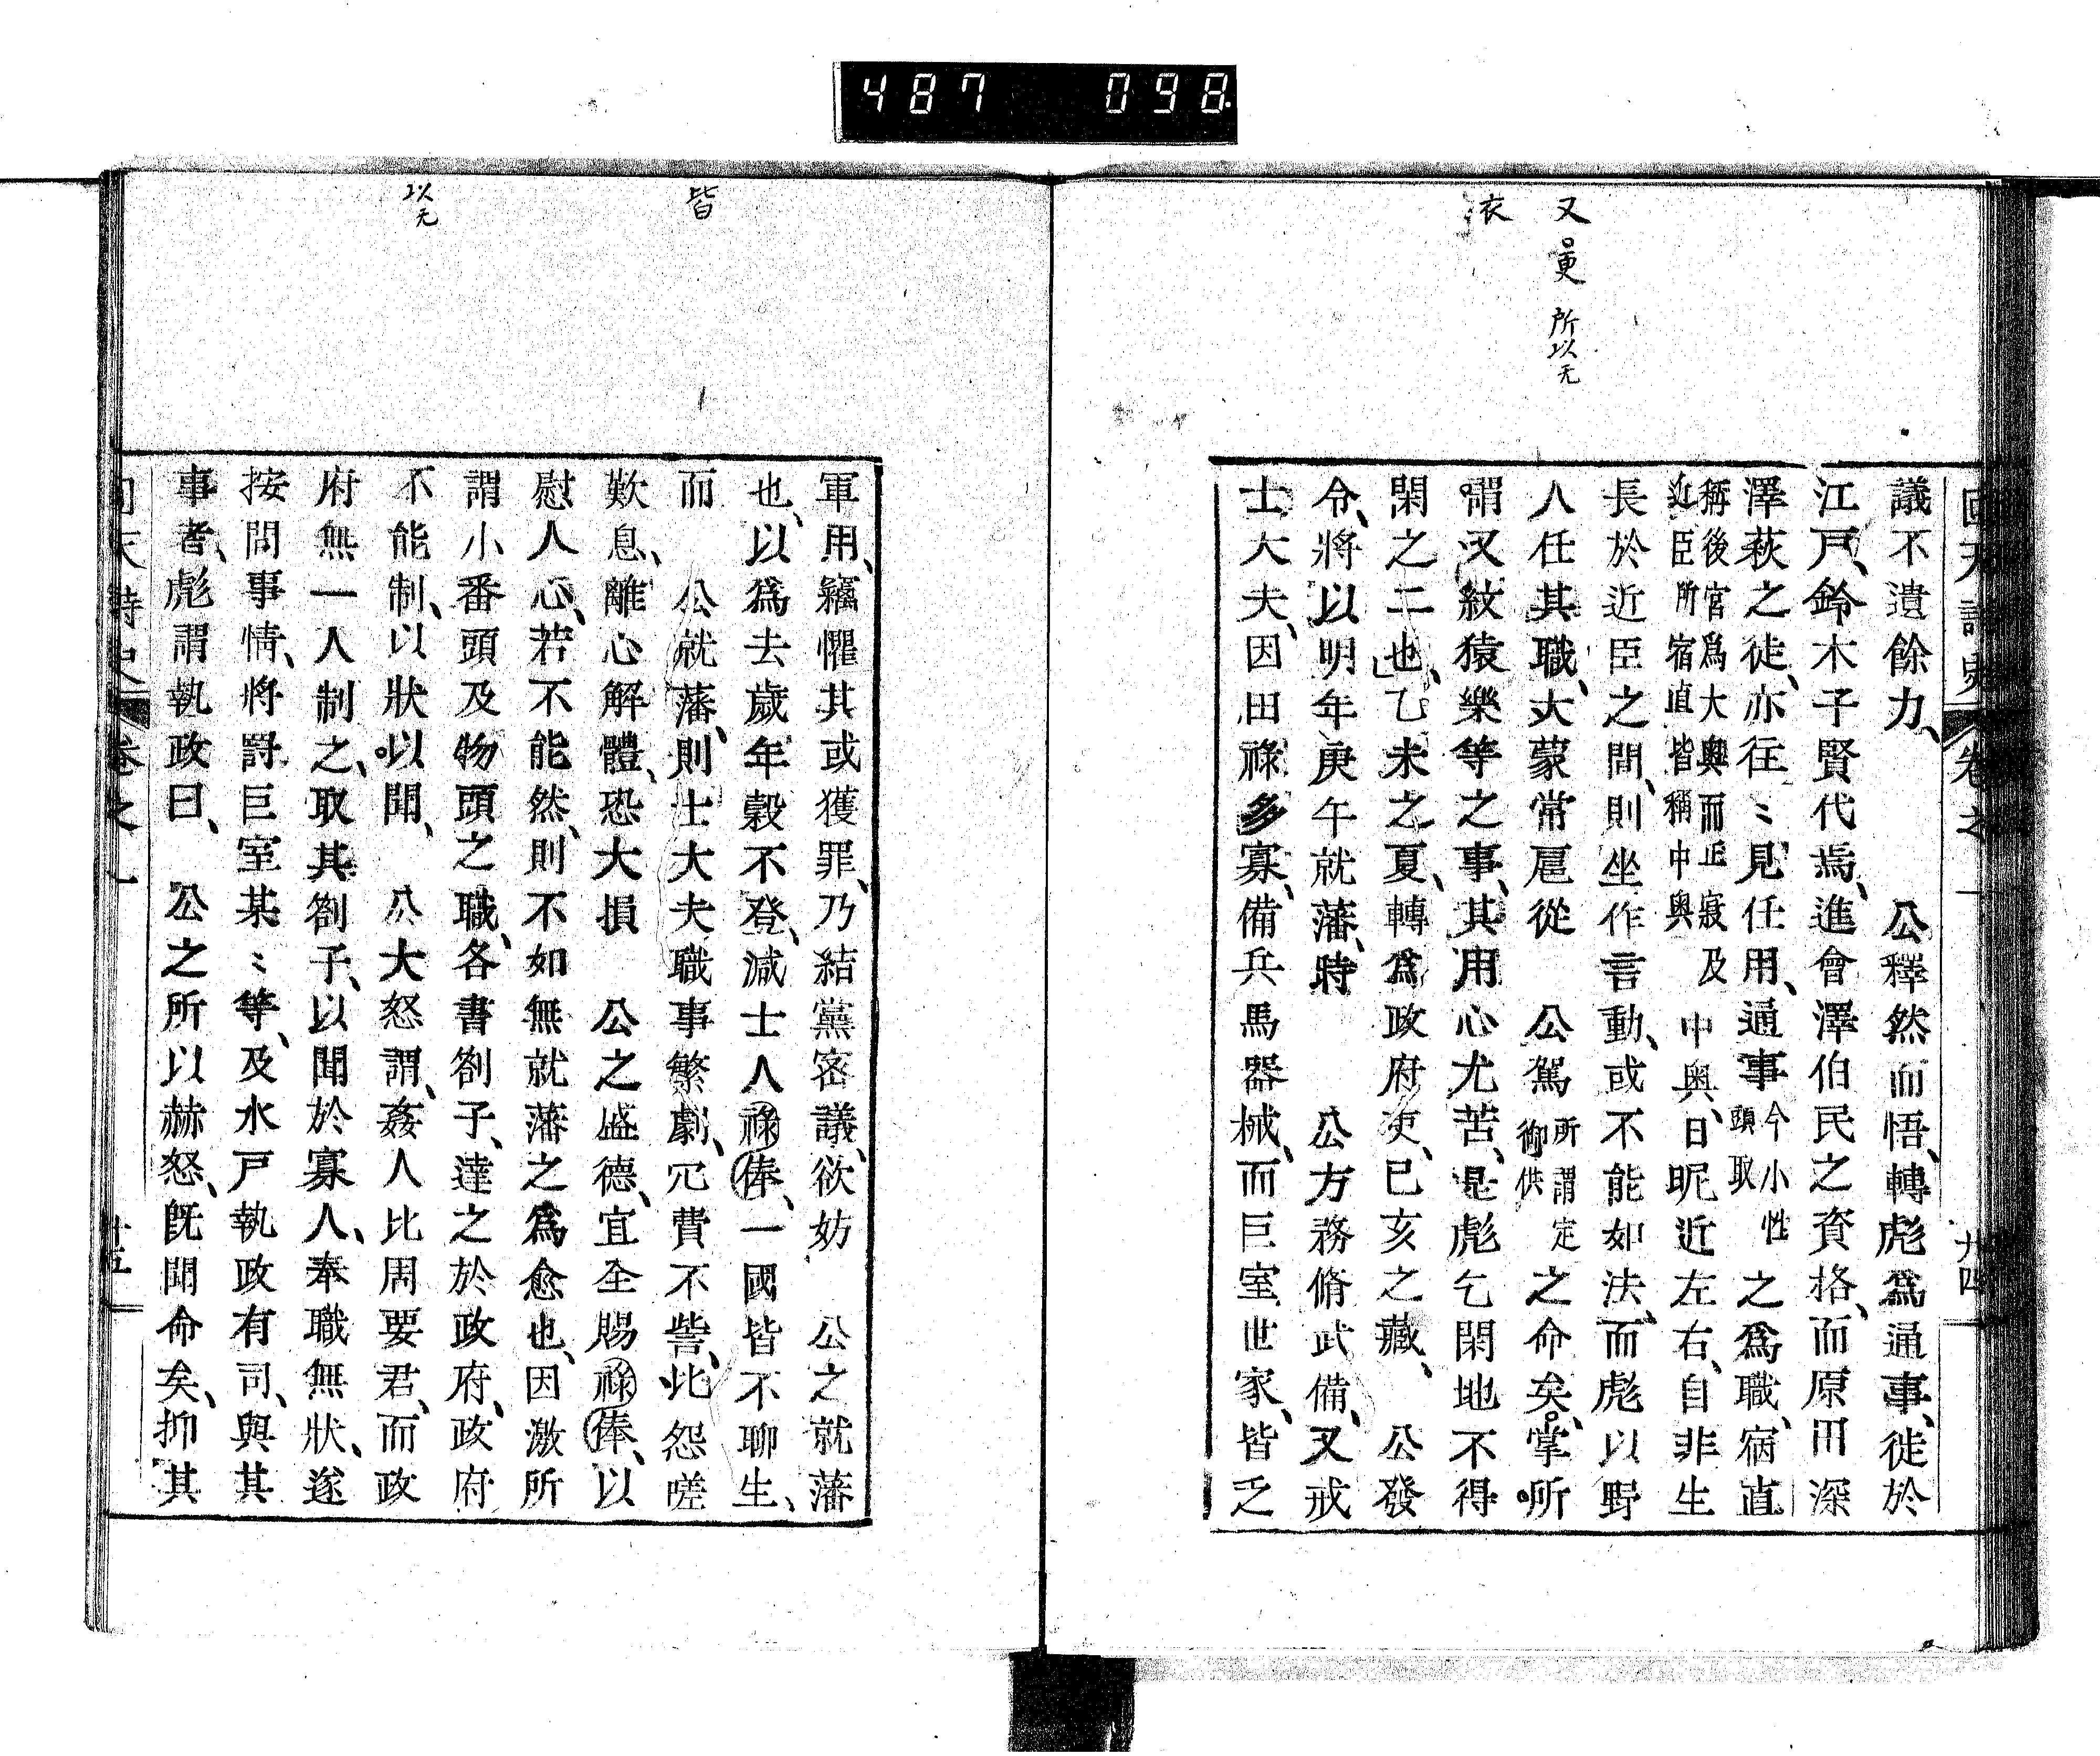 487 098
又
更
所以无
衣
回天詩史 卷之一 廿四
議不遺餘力、 公釋然而悟、轉彪爲通事、徙於
江戸、鈴木子賢代焉、進會澤伯民之資格、而原田深
澤萩之徒、亦往〻見任用、通事今小性頭取之爲職、宿直
稱後官爲大奧而正寢及近臣所宿直皆稱中奧中奧、日昵近左右、自非生
長於近臣之間、則坐作言動、或不能如法、而彪以野
人任其職、大蒙常扈從 公駕所謂定御供之命矣、掌所
謂又紋猿樂等之事、其用心尤苦、是彪乞閑地不得
閑之二也、乙未之夏、轉爲政府吏、已亥之藏、 公發
令、將以明年庚午就藩、時 公方務脩武備、又戒
士大夫、因田祿多寡、備兵馬器械、而巨室世家、皆乏
皆
以无
軍用、竊懼其或獲罪、乃結黨密議、欲妨 公之就藩
也、以爲去歲年穀不登、減士人祿俸、一國皆不聊生、
而 公就藩、則士大夫職事繁劇、冗費不訾、比怨嗟
歎息、離心解體、恐大損 公之盛德、宜全賜祿俸、以
慰人心、若不能然、則不如無就藩之爲愈也、因激所
謂小番頭及物頭之職、各書劄子、達之於政府、政府
不能制、以狀以聞、 公大怒謂、姦人比周要君、而政
府無一人制之、取其劄子、以聞於寡人、奉職無狀、遂
按問事情、將罸巨室某〻等、及水戸執政有司、與其
事者、彪謂執政曰、 公之所以赫怒、既聞命矣、抑其
回天詩史 卷之一 廿五